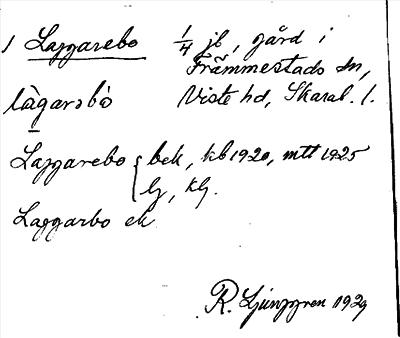 1 Laggarebo 1/4 jb, gård i
Främmestads sn,
Viste hd, Skarab. l.
làgarəbò
Laggarebo { bek, kb 1920, mtl 1925
lj, kg.
Laggarbo ek
R. Ljunggren 1929